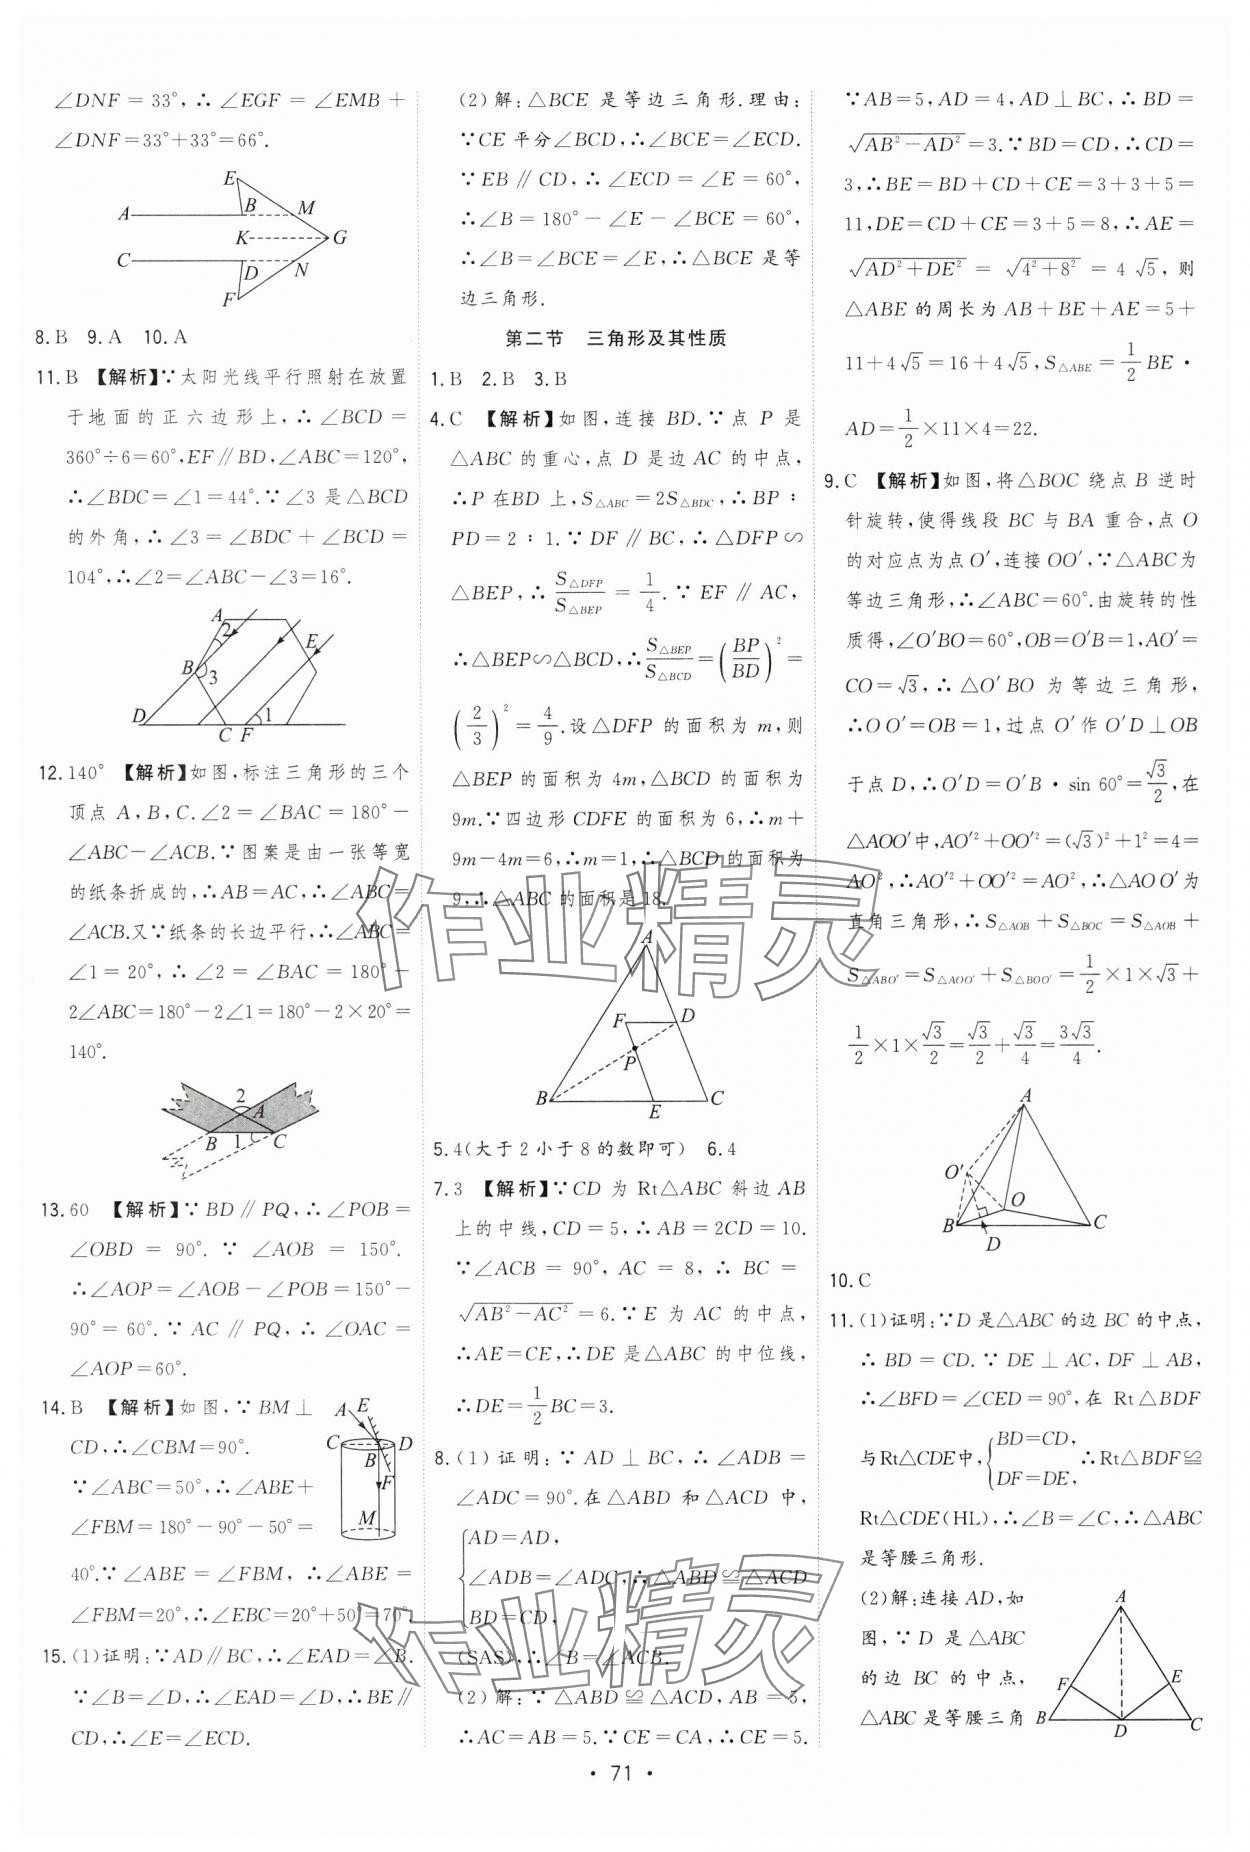 ∠DNF＝33°,∴∠EGF＝∠EMB＋
∠DNF＝33°＋33°＝66°.
E
A B M
K G
C D N
F
8.B 9.A 10.A
11.B 【解析】∵太阳光线平行照射在放置
于地面的正六边形上,∴∠BCD＝
360°÷6＝60°,EF∥BD,∠ABC＝120°,
∴∠BDC＝∠1＝44°.∵∠3是△BCD
的外角,∴∠3＝∠BDC＋∠BCD＝
104°,∴∠2＝∠ABC－∠3＝16°.
A 2 E
B 3
D C F 1
12.140° 【解析】如图,标注三角形的三个
顶点A,B,C.∠2＝∠BAC＝180°－
∠ABC－∠ACB.∵图案是由一张等宽
的纸条折成的,∴AB＝AC,∴∠ABC＝
∠ACB.又∵纸条的长边平行,∴∠ABC＝
∠1＝20°,∴∠2＝∠BAC＝180°－
2∠ABC＝180°－2∠1＝180°－2×20°＝
140°.
2 A
B 1 C
13.60 【解析】∵BD∥PQ,∴∠POB＝
∠OBD＝90°.∵∠AOB＝150°.
∴∠AOP＝∠AOB－∠POB＝150°－
90°＝60°.∵AC∥PQ,∴∠OAC＝
∠AOP＝60°.
14.B 【解析】如图,∵BM⊥
CD,∴∠CBM＝90°.
∵∠ABC＝50°,∴∠ABE＋
∠FBM＝180°－90°－50°＝
40°.∵∠ABE＝∠FBM,∴∠ABE＝
∠FBM＝20°,∴∠EBC＝20°＋50°＝70°.
A E
C D
B F
M
15.(1)证明:∵AD∥BC,∴∠EAD＝∠B.
∵∠B＝∠D,∴∠EAD＝∠D,∴BE∥
CD,∴∠E＝∠ECD.
(2)解:△BCE是等边三角形.理由:
∵CE平分∠BCD,∴∠BCE＝∠ECD.
∵EB∥CD,∴∠ECD＝∠E＝60°,
∴∠B＝180°－∠E－∠BCE＝60°,
∴∠B＝∠BCE＝∠E,∴△BCE是等
边三角形.
第二节 三角形及其性质
1.B 2.B 3.B
4.C 【解析】如图,连接BD.∵点P是
△ABC的重心,点D是边AC的中点,
∴P在BD上,S△ABC＝2S△BDC,∴BP∶
PD＝2∶1.∵DF∥BC,∴△DFP∽
△BEP,∴S△DFP/S△BEP＝1/4.∵EF∥AC,
∴△BEP∽△BCD,∴S△BEP/S△BCD＝(BP/BD)²＝
(2/3)²＝4/9.设△DFP的面积为m,则
△BEP的面积为4m,△BCD的面积为
9m.∵四边形CDFE的面积为6,∴m＋
9m－4m＝6,∴m＝1,∴△BCD的面积为
9,∴△ABC的面积是18.
A
F D
P
B E C
5.4(大于2小于8的数即可) 6.4
7.3 【解析】∵CD为Rt△ABC斜边AB
上的中线,CD＝5,∴AB＝2CD＝10.
∵∠ACB＝90°,AC＝8,∴BC＝
√(AB²－AC²)＝6.∵E为AC的中点,
∴AE＝CE,∴DE是△ABC的中位线,
∴DE＝1/2BC＝3.
8.(1)证明:∵AD⊥BC,∴∠ADB＝
∠ADC＝90°.在△ABD和△ACD中,
AD＝AD,
∠ADB＝∠ADC,∴△ABD≌△ACD
BD＝CD,
(SAS),∴∠B＝∠ACB.
(2)解:∵△ABD≌△ACD,AB＝5,
∴AC＝AB＝5.∵CE＝CA,∴CE＝5.
∵AB＝5,AD＝4,AD⊥BC,∴BD＝
√(AB²－AD²)＝3.∵BD＝CD,∴CD＝
3,∴BE＝BD＋CD＋CE＝3＋3＋5＝
11,DE＝CD＋CE＝3＋5＝8,∴AE＝
√(AD²＋DE²)＝√(4²＋8²)＝4√5,则
△ABE的周长为AB＋BE＋AE＝5＋
11＋4√5＝16＋4√5,S△ABE＝1/2BE·
AD＝1/2×11×4＝22.
9.C 【解析】如图,将△BOC绕点B逆时
针旋转,使得线段BC与BA重合,点O
的对应点为点O′,连接OO′,∵△ABC为
等边三角形,∴∠ABC＝60°.由旋转的性
质得,∠O′BO＝60°,OB＝O′B＝1,AO′＝
CO＝√3,∴△O′BO为等边三角形,
∴OO′＝OB＝1,过点O′作O′D⊥OB
于点D,∴O′D＝O′B·sin 60°＝√3/2,在
△AOO′中,AO′²＋OO′²＝(√3)²＋1²＝4＝
AO²,∴AO′²＋OO′²＝AO²,∴△AOO′为
直角三角形,∴S△AOB＋S△BOC＝S△AOB＋
S△ABO′＝S△AOO′＋S△BOO′＝1/2×1×√3＋
1/2×1×√3/2＝√3/2＋√3/4＝3√3/4.
A
O′
O
B D C
10.C
11.(1)证明:∵D是△ABC的边BC的中点,
∴BD＝CD.∵DE⊥AC,DF⊥AB,
∴∠BFD＝∠CED＝90°,在Rt△BDF
与Rt△CDE中,{BD＝CD, DF＝DE, ∴Rt△BDF≌
Rt△CDE(HL),∴∠B＝∠C,∴△ABC
是等腰三角形.
(2)解:连接AD,如
图,∵D是△ABC
的边BC的中点,
△ABC是等腰三角
A
F E
B D C
作业精灵
作业精灵
·71·